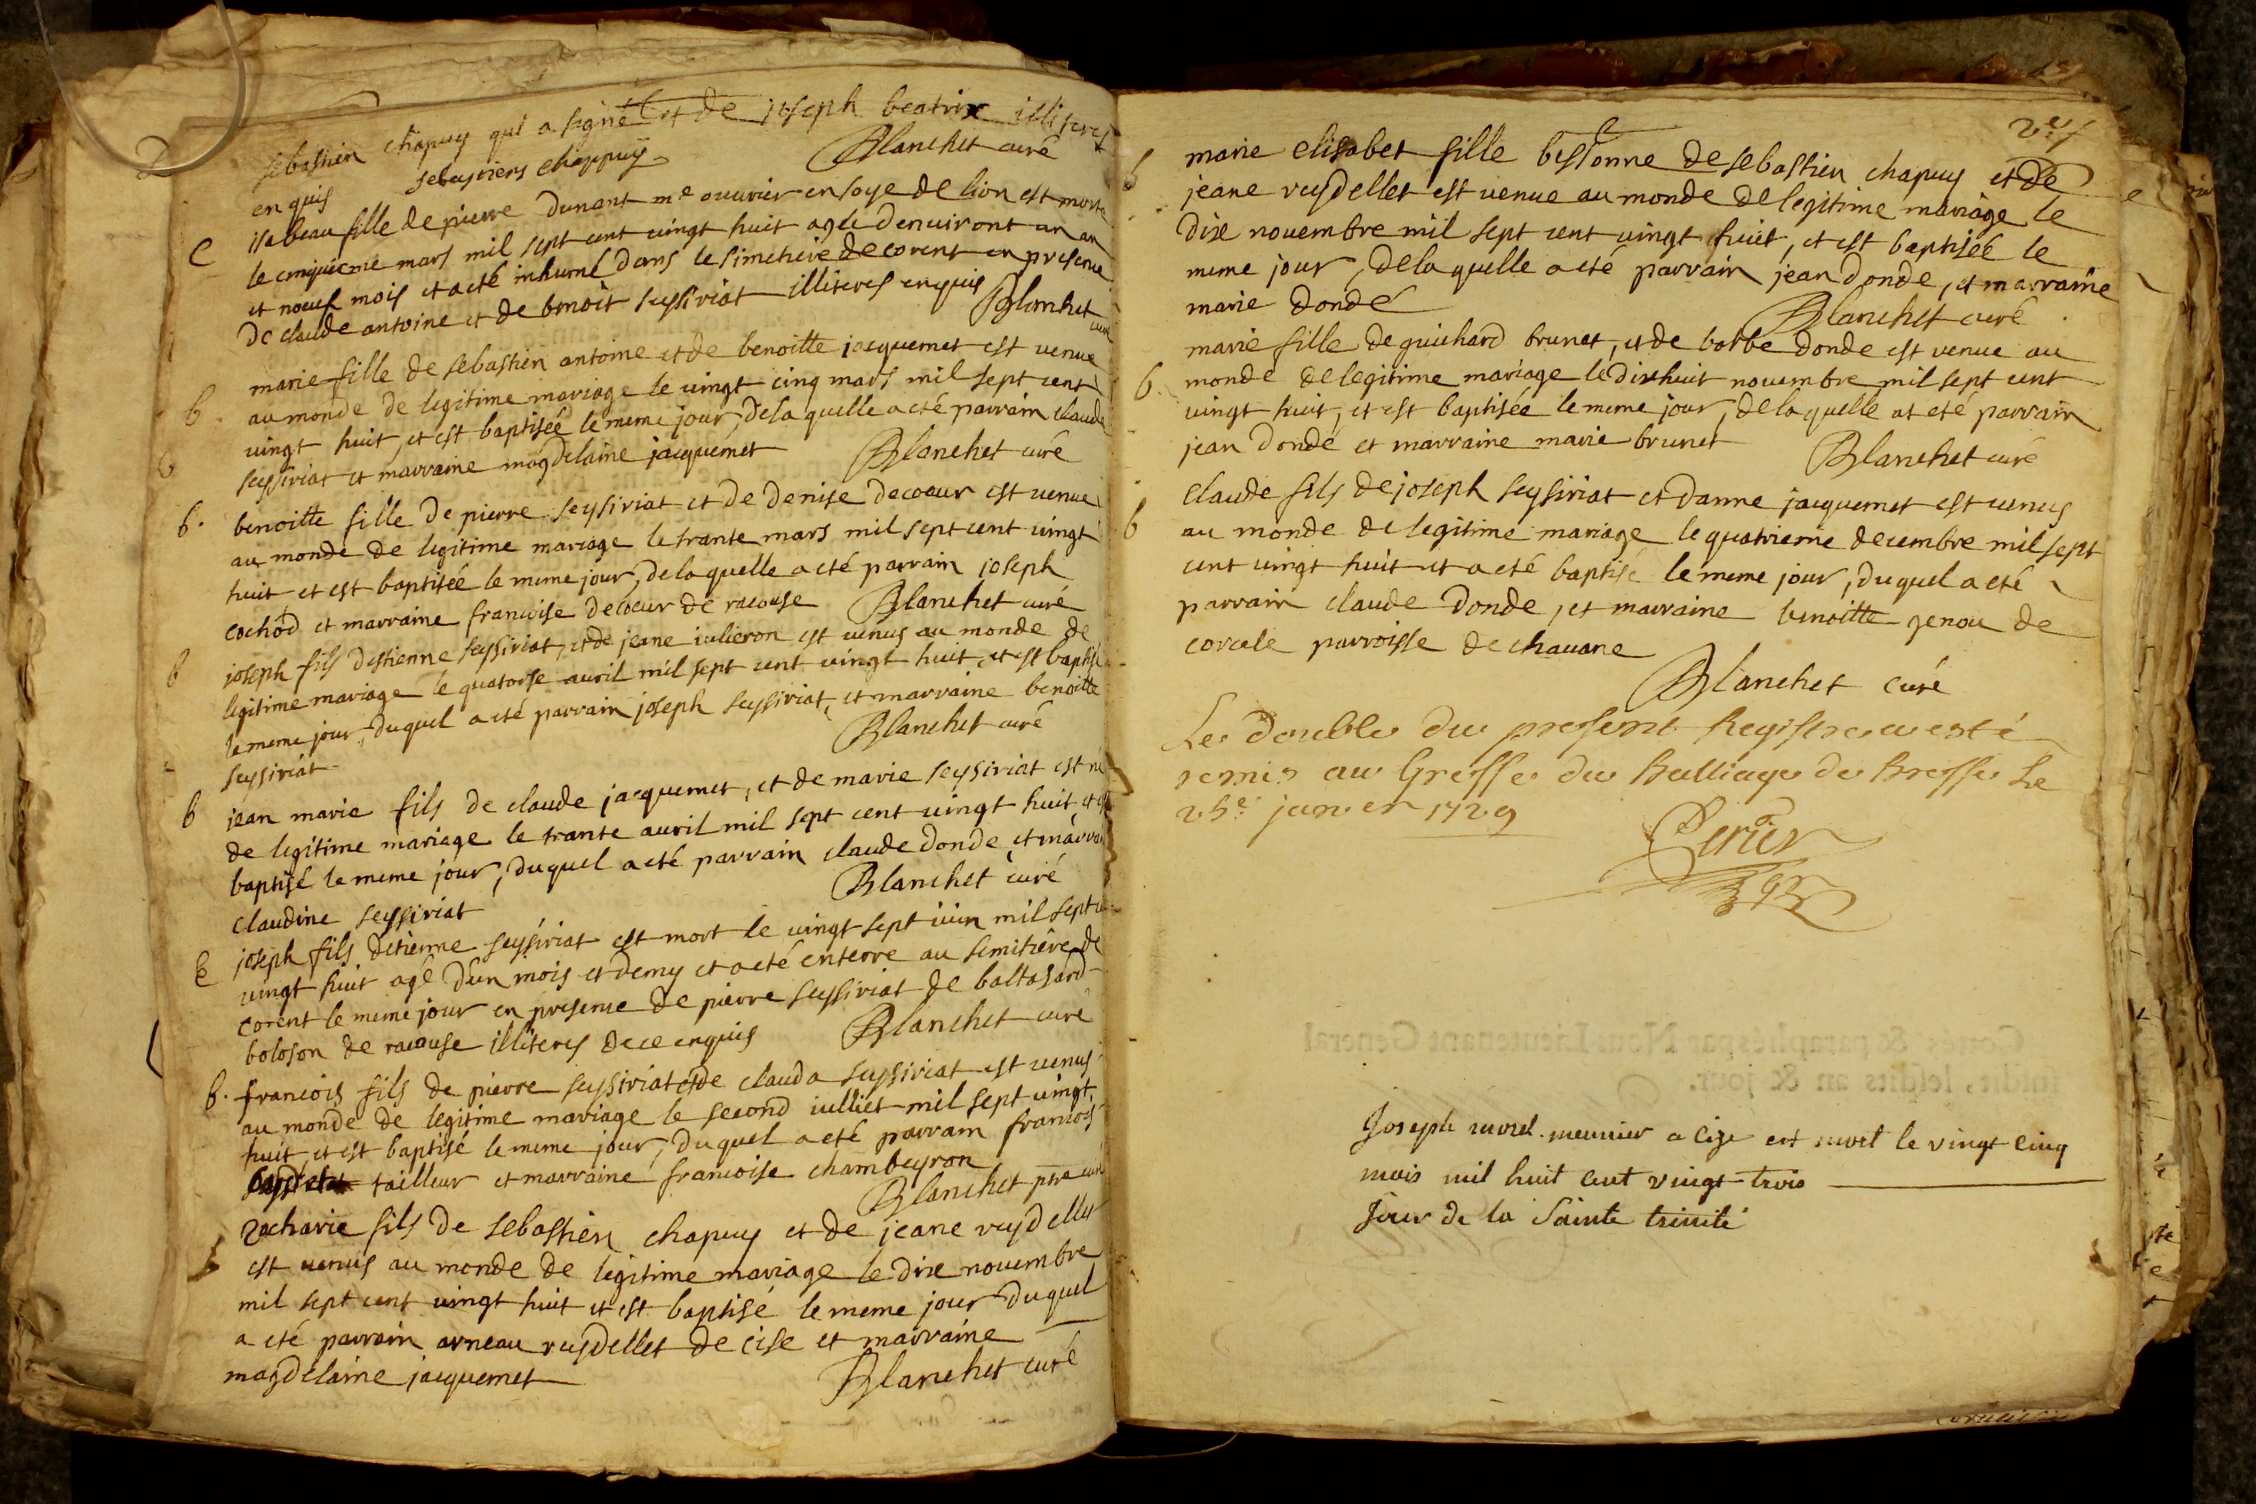 sebastien chapuy qui a signé et de joseph beatrix illiteres
enquis sebastiens chappuy Blanchet curé
e isabeau fille de pierre Dunant me ouvrier en soye de lion est morte
le cinquieme mars mil sept cent vingt huit agée denviront un an
et noeuf mois et acté inhumé dans le simetiere de corent en presence
De claude antoine et de benoit seyssiriat illiteres enquis Blanchet curé
marie fille de sebastien antoine et de benoitte jacquemet est venue
b. au monde de legitime mariage le vingt cinq mars mil sept cent
vingt huit, et est baptiseé le meme jour, de la quelle a eté parrain claude
b seyssiriat et marraine magdelaine jacquemet Blanchet curé
b. benoitte fille de pierre seysiriat et de denise decoeur est venue
au monde de legitime mariage le trante mars mil sept cent vingt
huit et est baptiseé le meme jour, de la quelle a eté parrain joseph
cochod et marraine francoise decoeur de racouse Blanchet curé
b joseph fils destienne seyssiriat, et de jeane iulieron est venus au monde de
legitime mariage le quatorse auril mil sept cent vingt huit, et est baptisé
le meme jour, duquel a eté parrain joseph seyssiriat, et marraine benoitte
seysiriat Blanchet curé
b jean marie fils de claude jacquemet, et de marie seysiriat est né
de legitime mariage le trante auril mil sept cent vingt huit et est
baptisé le meme jour, duquel a eté parrain claude donde et marraine
claudine seyssiriat Blanchet curé
E joseph fils detienne seysiriat est mort le vingt sept iuin mil sept cent
vingt huit agé dun mois et demy et a eté enterre au semitiêre de
corent le meme jour en presence de pierre seyssiriat de baltasard
boloson de racouse illiteres de ce enquis Blanchet curé
b. francois fils de pierre seyssiriat et de clauda seyssiriat est venus
au monde de legitime mariage le second iulliet mil sept vingt
huit, et est baptisé le meme jour, duquel a eté parrain francois
tailleur et marraine francoise chambeyron
Blanchet ptre curé
b zacharie fils de sebastien chapuy et de jeane ruydellet
est venus au monde de legitime mariage le dixe nouembre
mil sept cent vingt huit et est baptisé le meme jour duquel
a eté parrain arneau ruydellet de cise et marraine
magdelaine jacquemet Blanchet curé
b marie elisabet fille bessonne de sebastien chapuy et de
jeane ruydellet est venue au monde de legitime mariage le
dixe nouembre mil sept cent vingt huit, et est baptiseé le
meme jour, de la quelle a eté parrain jean donde, et marraine
marie dondé Blanchet curé
marie fille de guichard brunet, et de barbe donde est venue au
b monde de legitime mariage le dixhuit nouembre mil sept cent
vingt huit, et est baptisée le meme jour, de la quelle at eté parrain
jean dondé et marraine marie brunet Blanchet curé
claude fils de joseph seysiriat et danne jacquemet est venus
b au monde de legitime mariage le quatrieme decembre mil sept
cent vingt huit et a eté baptisé le meme jour, duquel a eté
parrain claude donde, et marraine benoitte genou de
corcele parroisse de chauane
Blanchet curé
Le double du present Registre a esté
remis au Greffe du Balliage de Bresse Le
25e janvier 1729
Perier
Joseph morel meunier a cize est mort le vingt cinq
mais mil huit cent vingt trois
Jour de la Sainte trinité